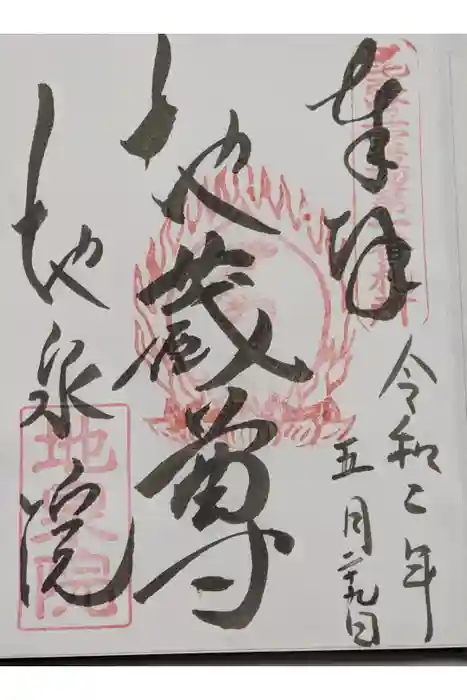 奉拝
令和二年
五月廿九日
地蔵尊
地泉院
地泉院